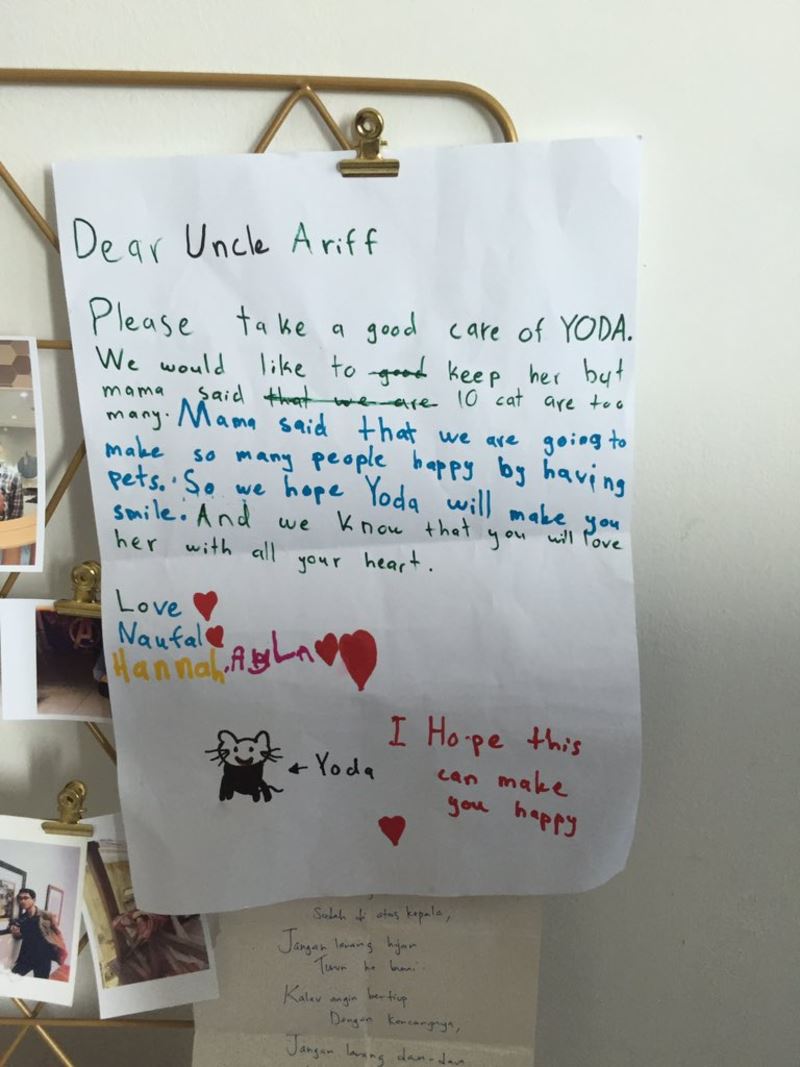 Dear Uncle Ariff
Please take a good care of YODA.
We would like to good keep her but
mama said that we are 10 cat are too
many. Mama said that we are going to
make so many people happy by having
pets. So we hope Yoda will make you
smile. And we know that you will love
her with all your heart.
Love
Naufal
Hannah,
← Yoda
I Hope this
can make
you happy
Sudah di atas kepala,
Jangan larang hujan
Turun ke bumi.
Kalau angin bertiup
Dengan kencangnya,
Jangan larang